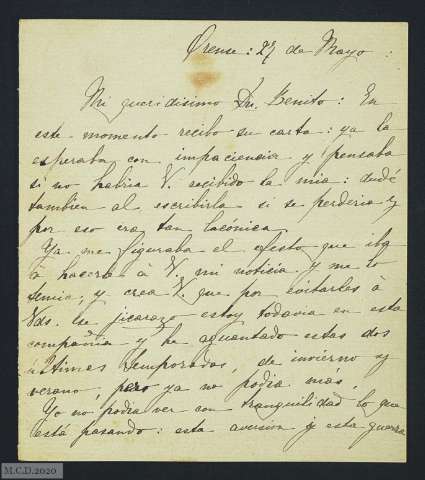 Orense: 27 de Mayo :
Mi queridisimo Dn. Benito: En
este momento recibo su carta: ya la
esperaba con impaciencia y pensaba
si no habria V. recibido la mia: dudé
tambien al escribirla si se perderia y
por eso era tan lacónica.
Ya me figuraba el efecto que iba
á hacerle á V. mi noticia y me lo
temia; y crea V. que por evitarles á
Vds. ese jicarazo estoy todavia en esta
compañia y he aguantado estas dos
últimas temporadas, de invierno y
verano, pero ya no podia más.
Yo no podia ver con tranquilidad lo que
está pasando: esta aversion y esta guerra
M.C.D.2020